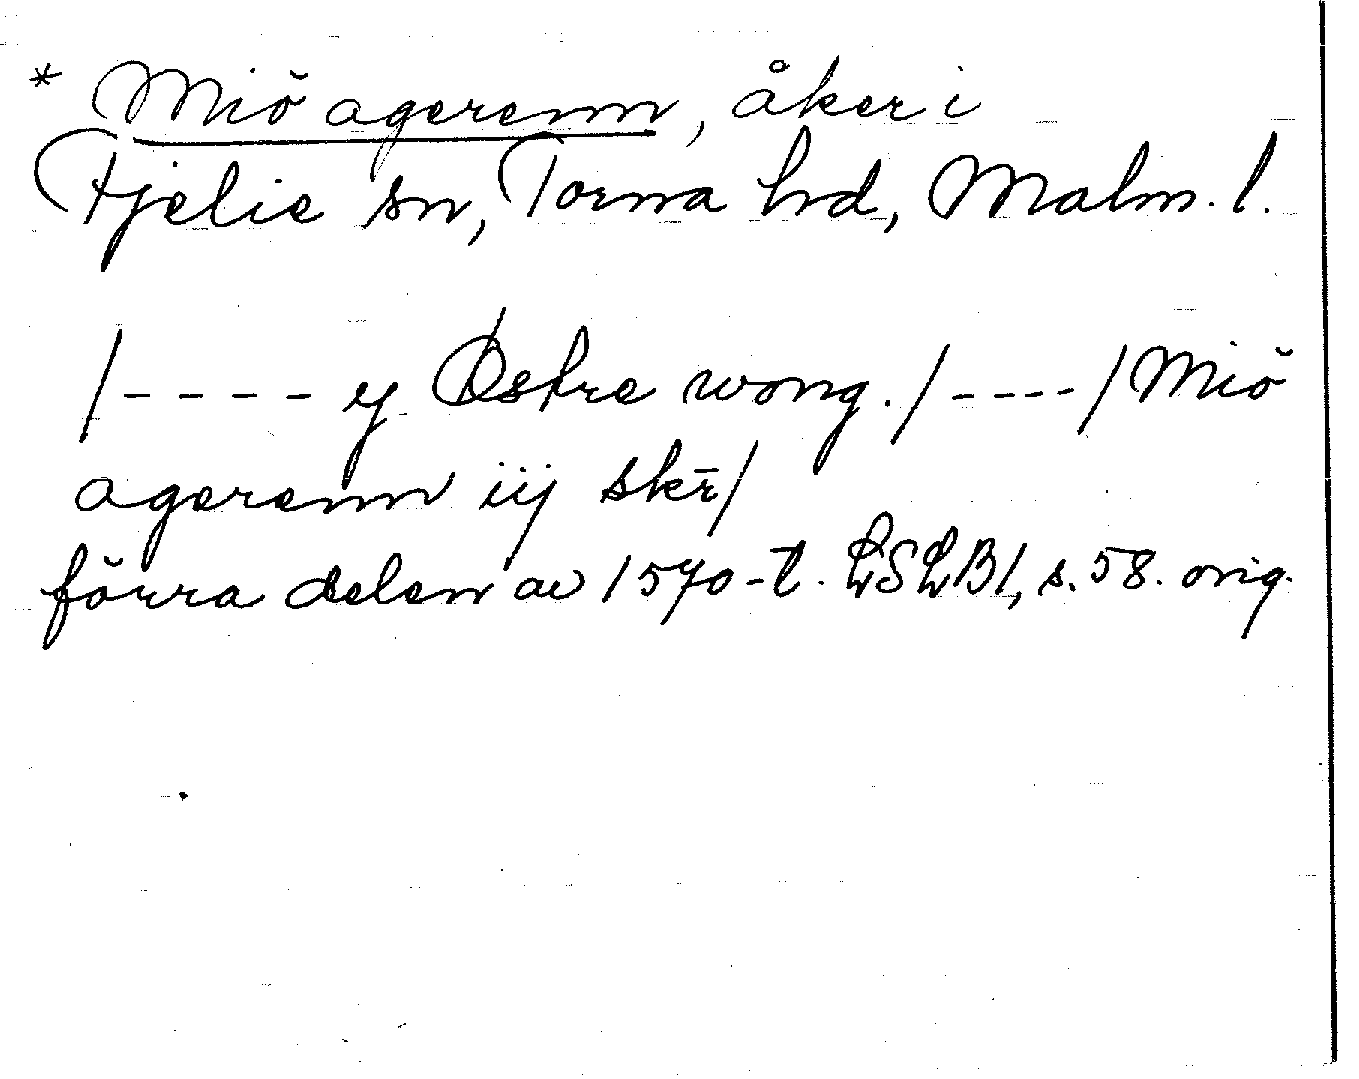 * Miö agerenn, åker i
Fjelie sn, Torna hd, Malm. l.
/---- y Østre wong. /----/ Miö
agerenn iij skr̄/
förra delen av 1570-t. LSLB1, s. 58. orig.